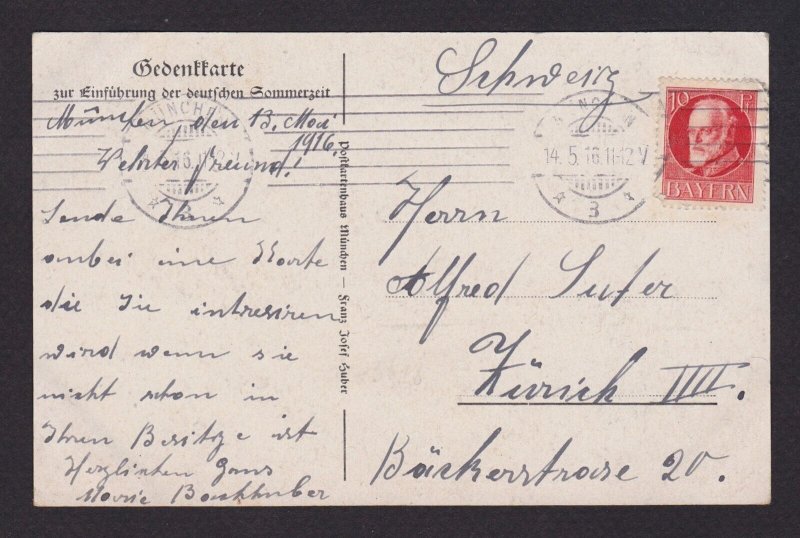 Gedenkkarte
zur Einführung der deutschen Sommerzeit
München, den 13. Mai
1916.
Wehrter Freund!
Sende Ihnen
anbei eine Karte
die Sie intresiren
wird wenn sie
nicht schon in
Ihren Besitze ist
Herzlichen Gruss
Marie Bachhuber
Postkartenhaus München — Franz Josef Huber
Schweiz
MÜNCHEN
14.5.16.11-12V
3
10 Pf
BAYERN
Herrn
Alfred Suter
Zürich IIII.
Bäckerstrasse 20.